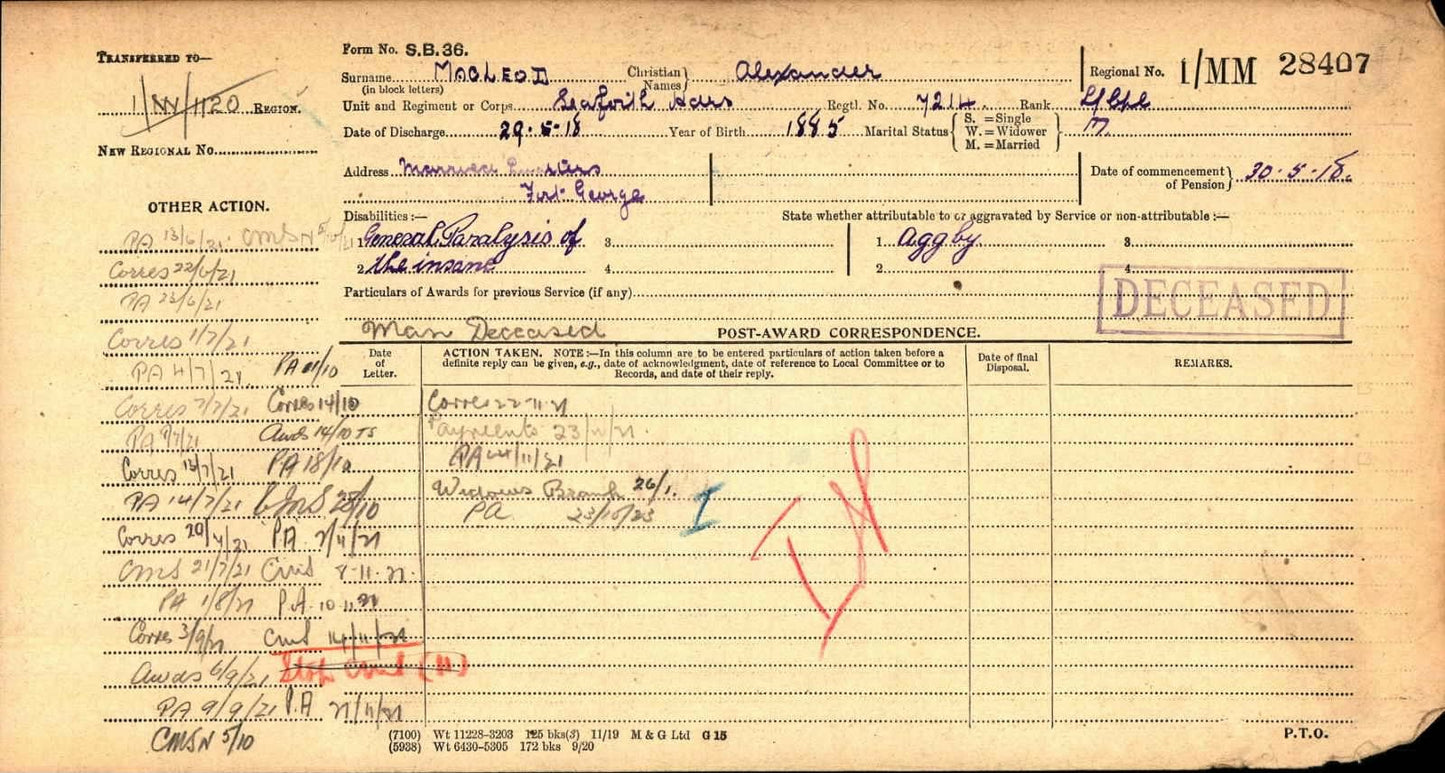 TRANSFERRED TO—
1/NW/1120 REGION.
NEW REGIONAL No.
OTHER ACTION.
PA 13/6/21 CMSN
Corres 22/6/21
PA 23/6/21
Corres 1/7/21
PA 4/7/21 PA 11/10
Corres 7/7/21 Corres 14/10
PA 9/7/21 Awds 14/10 TS
Corres 13/7/21 PA 18/10
PA 14/7/21 CMS 28/10
Corres PA 2/11/21
CMS 21/7/21 CMS 8.11.21.
PA 1/8/21 P.A. 10.11.21
Corres 3/9/21 CMS 14/11/21
Awds 6/9/21
PA 9/9/21 P.A 21/11/21
CMSN 5/10
Form No. S.B. 36.
Surname MACLEOD Christian Names} Alexander
(in block letters)
Regional No. 1/MM 28407
Unit and Regiment or Corps Seaforth Hdrs Regtl. No. 7214. Rank L/Cpl
Date of Discharge 29-5-18 Year of Birth 1885 Marital Status { S. = Single W. = Widower M. = Married } M
Address Married Quarters
Fort George
Date of commencement of Pension} 30.5.18.
Disabilities :— State whether attributable to or aggravated by Service or non-attributable :—
1 General Paralysis of 3 1 agg by 3
2 the insane 4 2 4
Particulars of Awards for previous Service (if any)
DECEASED
Man Deceased POST-AWARD CORRESPONDENCE.
Date of Letter. ACTION TAKEN. NOTE :—In this column are to be entered particulars of action taken before a definite reply can be given, e.g., date of acknowledgment, date of reference to Local Committee or to Records, and date of their reply. Date of final Disposal. REMARKS.
Corres 22-11-21
Payments 23/11/21.
PA 24/11/21
Widows Branch 26/1.
PA 23/10/23
I
(7100) Wt 11228-3203 125 bks(3) 11/19 M & G Ltd G 15
(5938) Wt 6430-5305 172 bks 9/20
P.T.O.